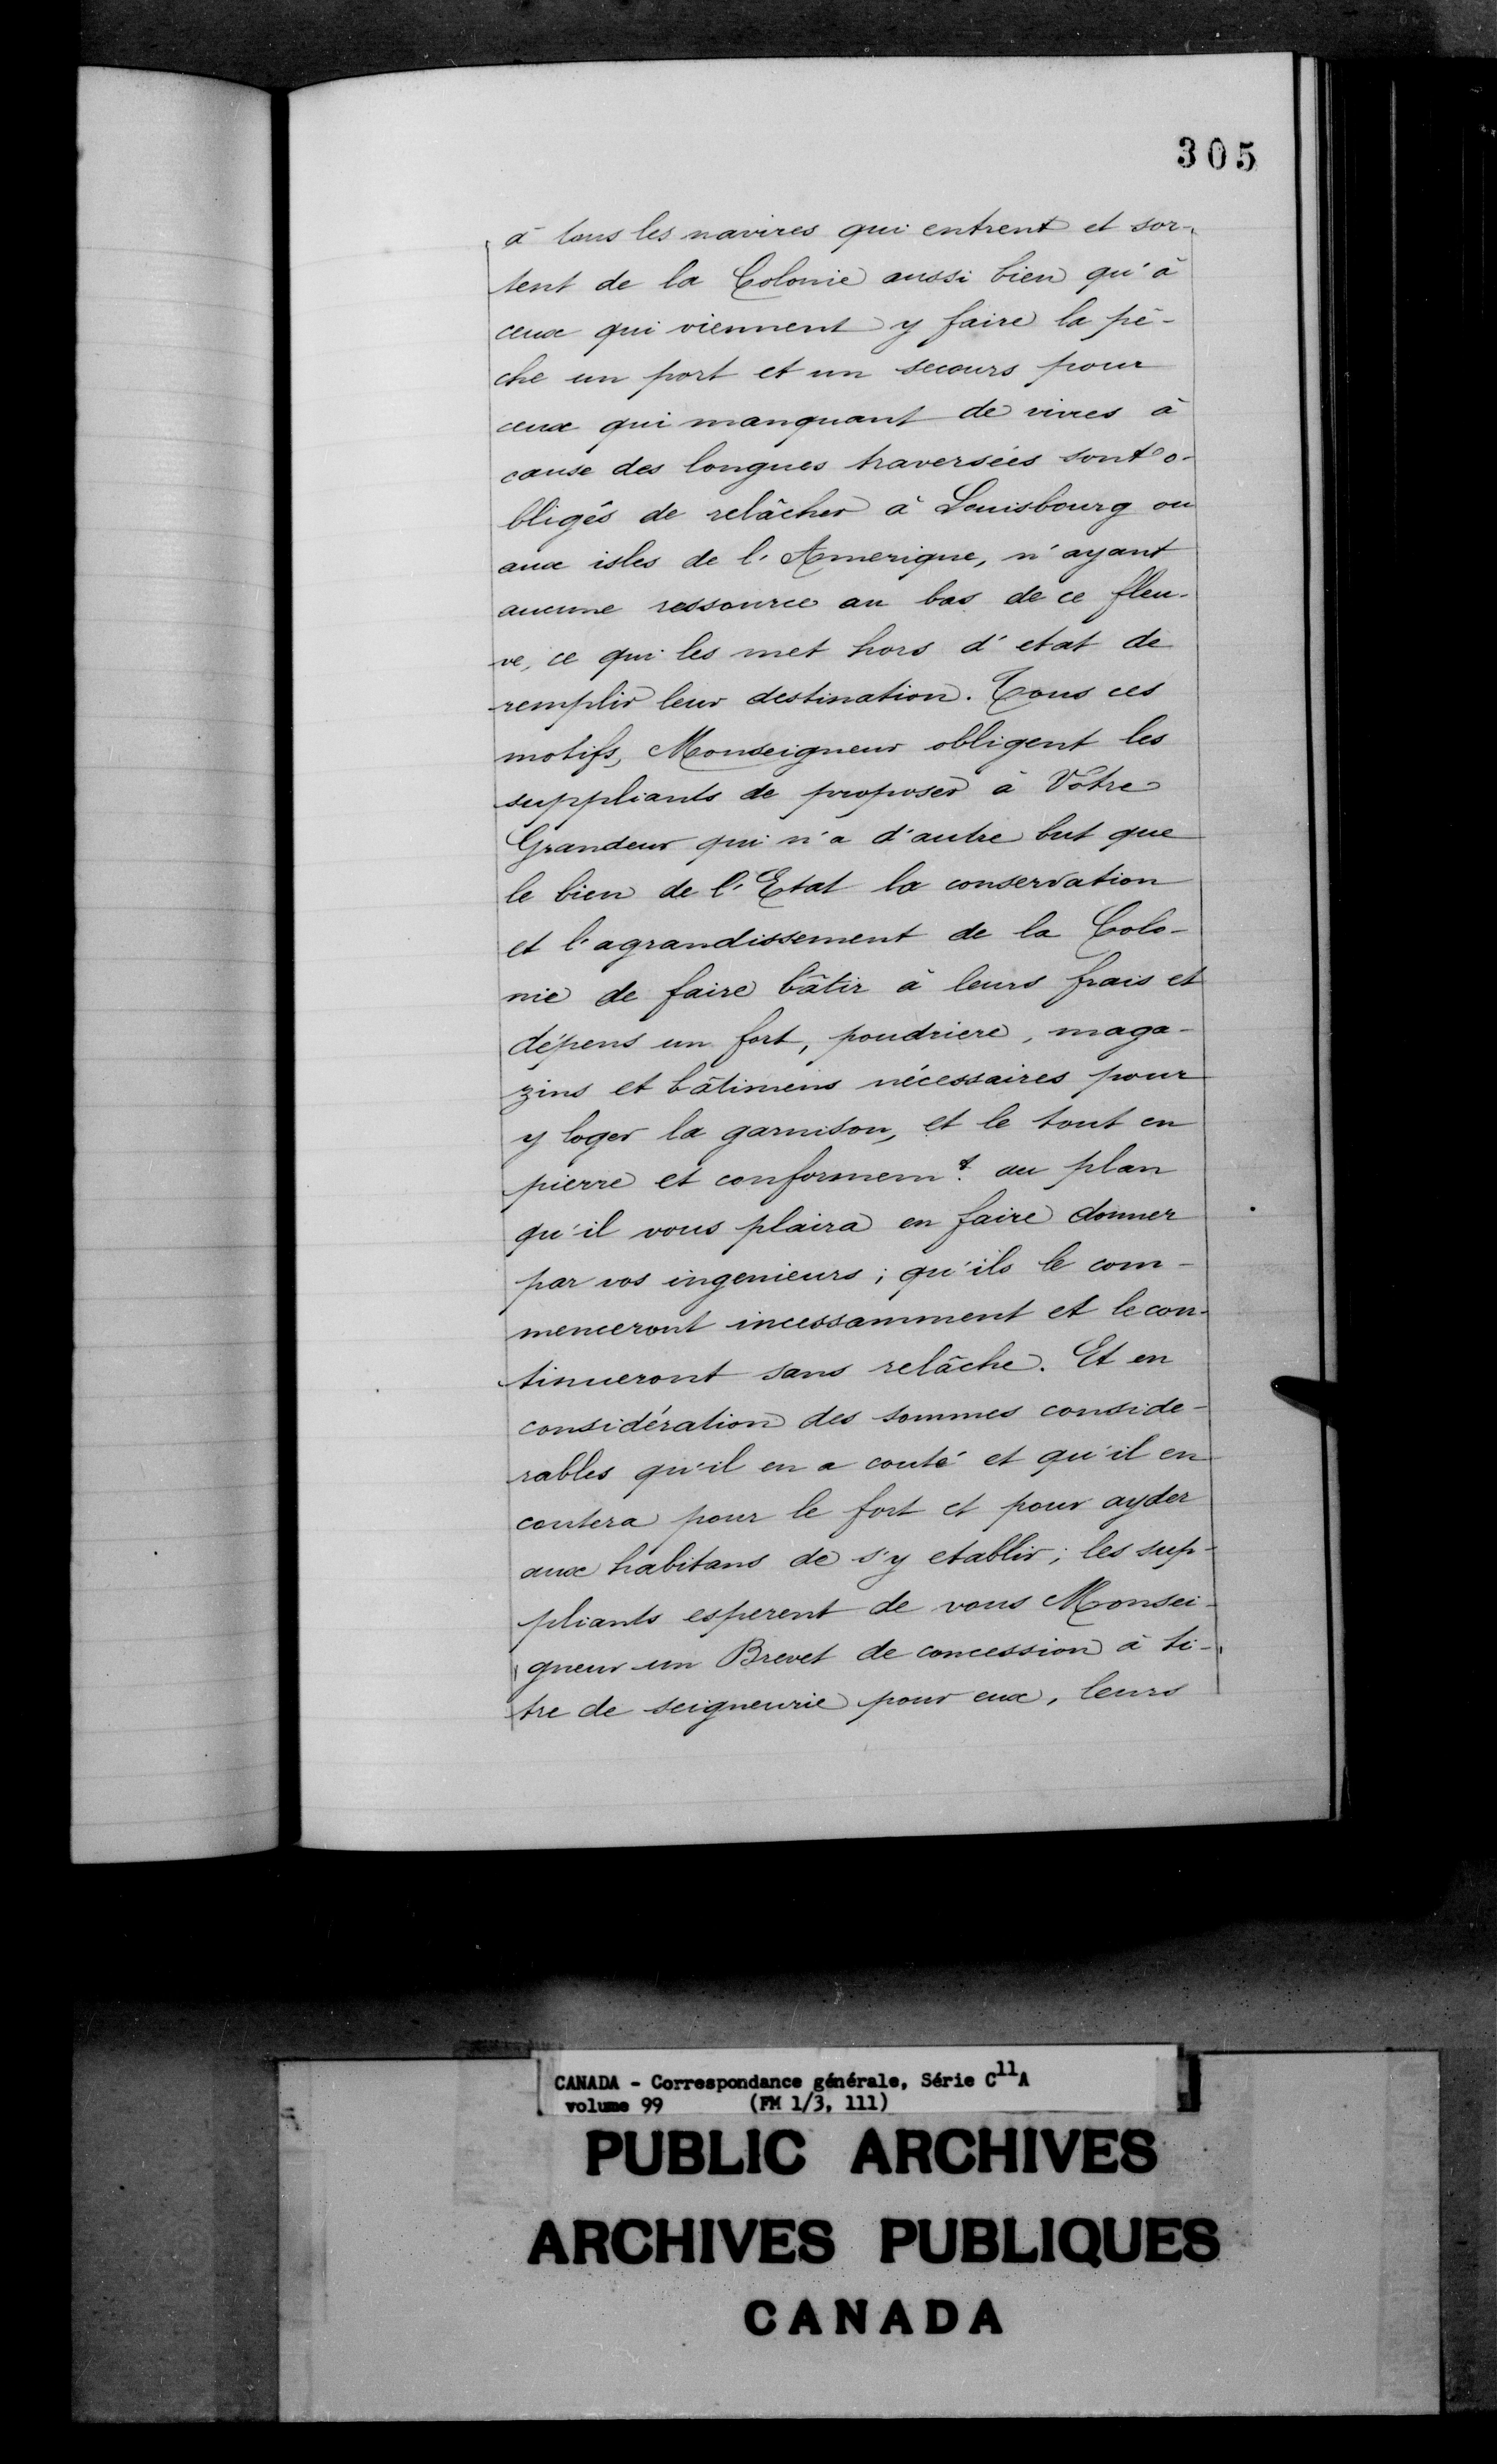 305
à tous les navires qui entrent et sor-
tent de la Colonie aussi bien qu'à
ceux qui viennent y faire la pê-
che un port et un secours pour
ceux qui manquant de vivres à
cause des longues traversées sont o-
bligés de relâcher à Louisbourg ou
aux isles de l'Amerique, n'ayant
aucune ressource au bas de ce fleu-
ve, ce qui les met hors d'etat de
remplir leur destination. Tous ces
motifs, Monseigneur obligent les
suppliants de proposer à Votre
Grandeur qui n'a d'autre but que
le bien de l'Etat la conservation
et l'agrandissement de la Colo-
nie de faire bâtir à leurs frais et
dépens un fort, poudriere, maga-
zins et bâtimens nécessaires pour
y loger la garnison, et le tout en
pierre et conformem.t au plan
qu'il vous plaira en faire donner
par vos ingenieurs; qu'ils le com-
menceront incessamment et le con-
tinueront sans relâche. Et en
considération des sommes conside-
rables qu'il en a couté et qu'il en
coutera pour le fort et pour ayder
aux habitans de s'y etablir; les sup-
pliants esperent de vous Monsei-
gneur un Brevet de concession à ti-
tre de seigneurie pour eux, leurs
CANADA - Correspondance générale, Série C11A
volume 99 (FM 1/3, 111)
PUBLIC ARCHIVES
ARCHIVES PUBLIQUES
CANADA